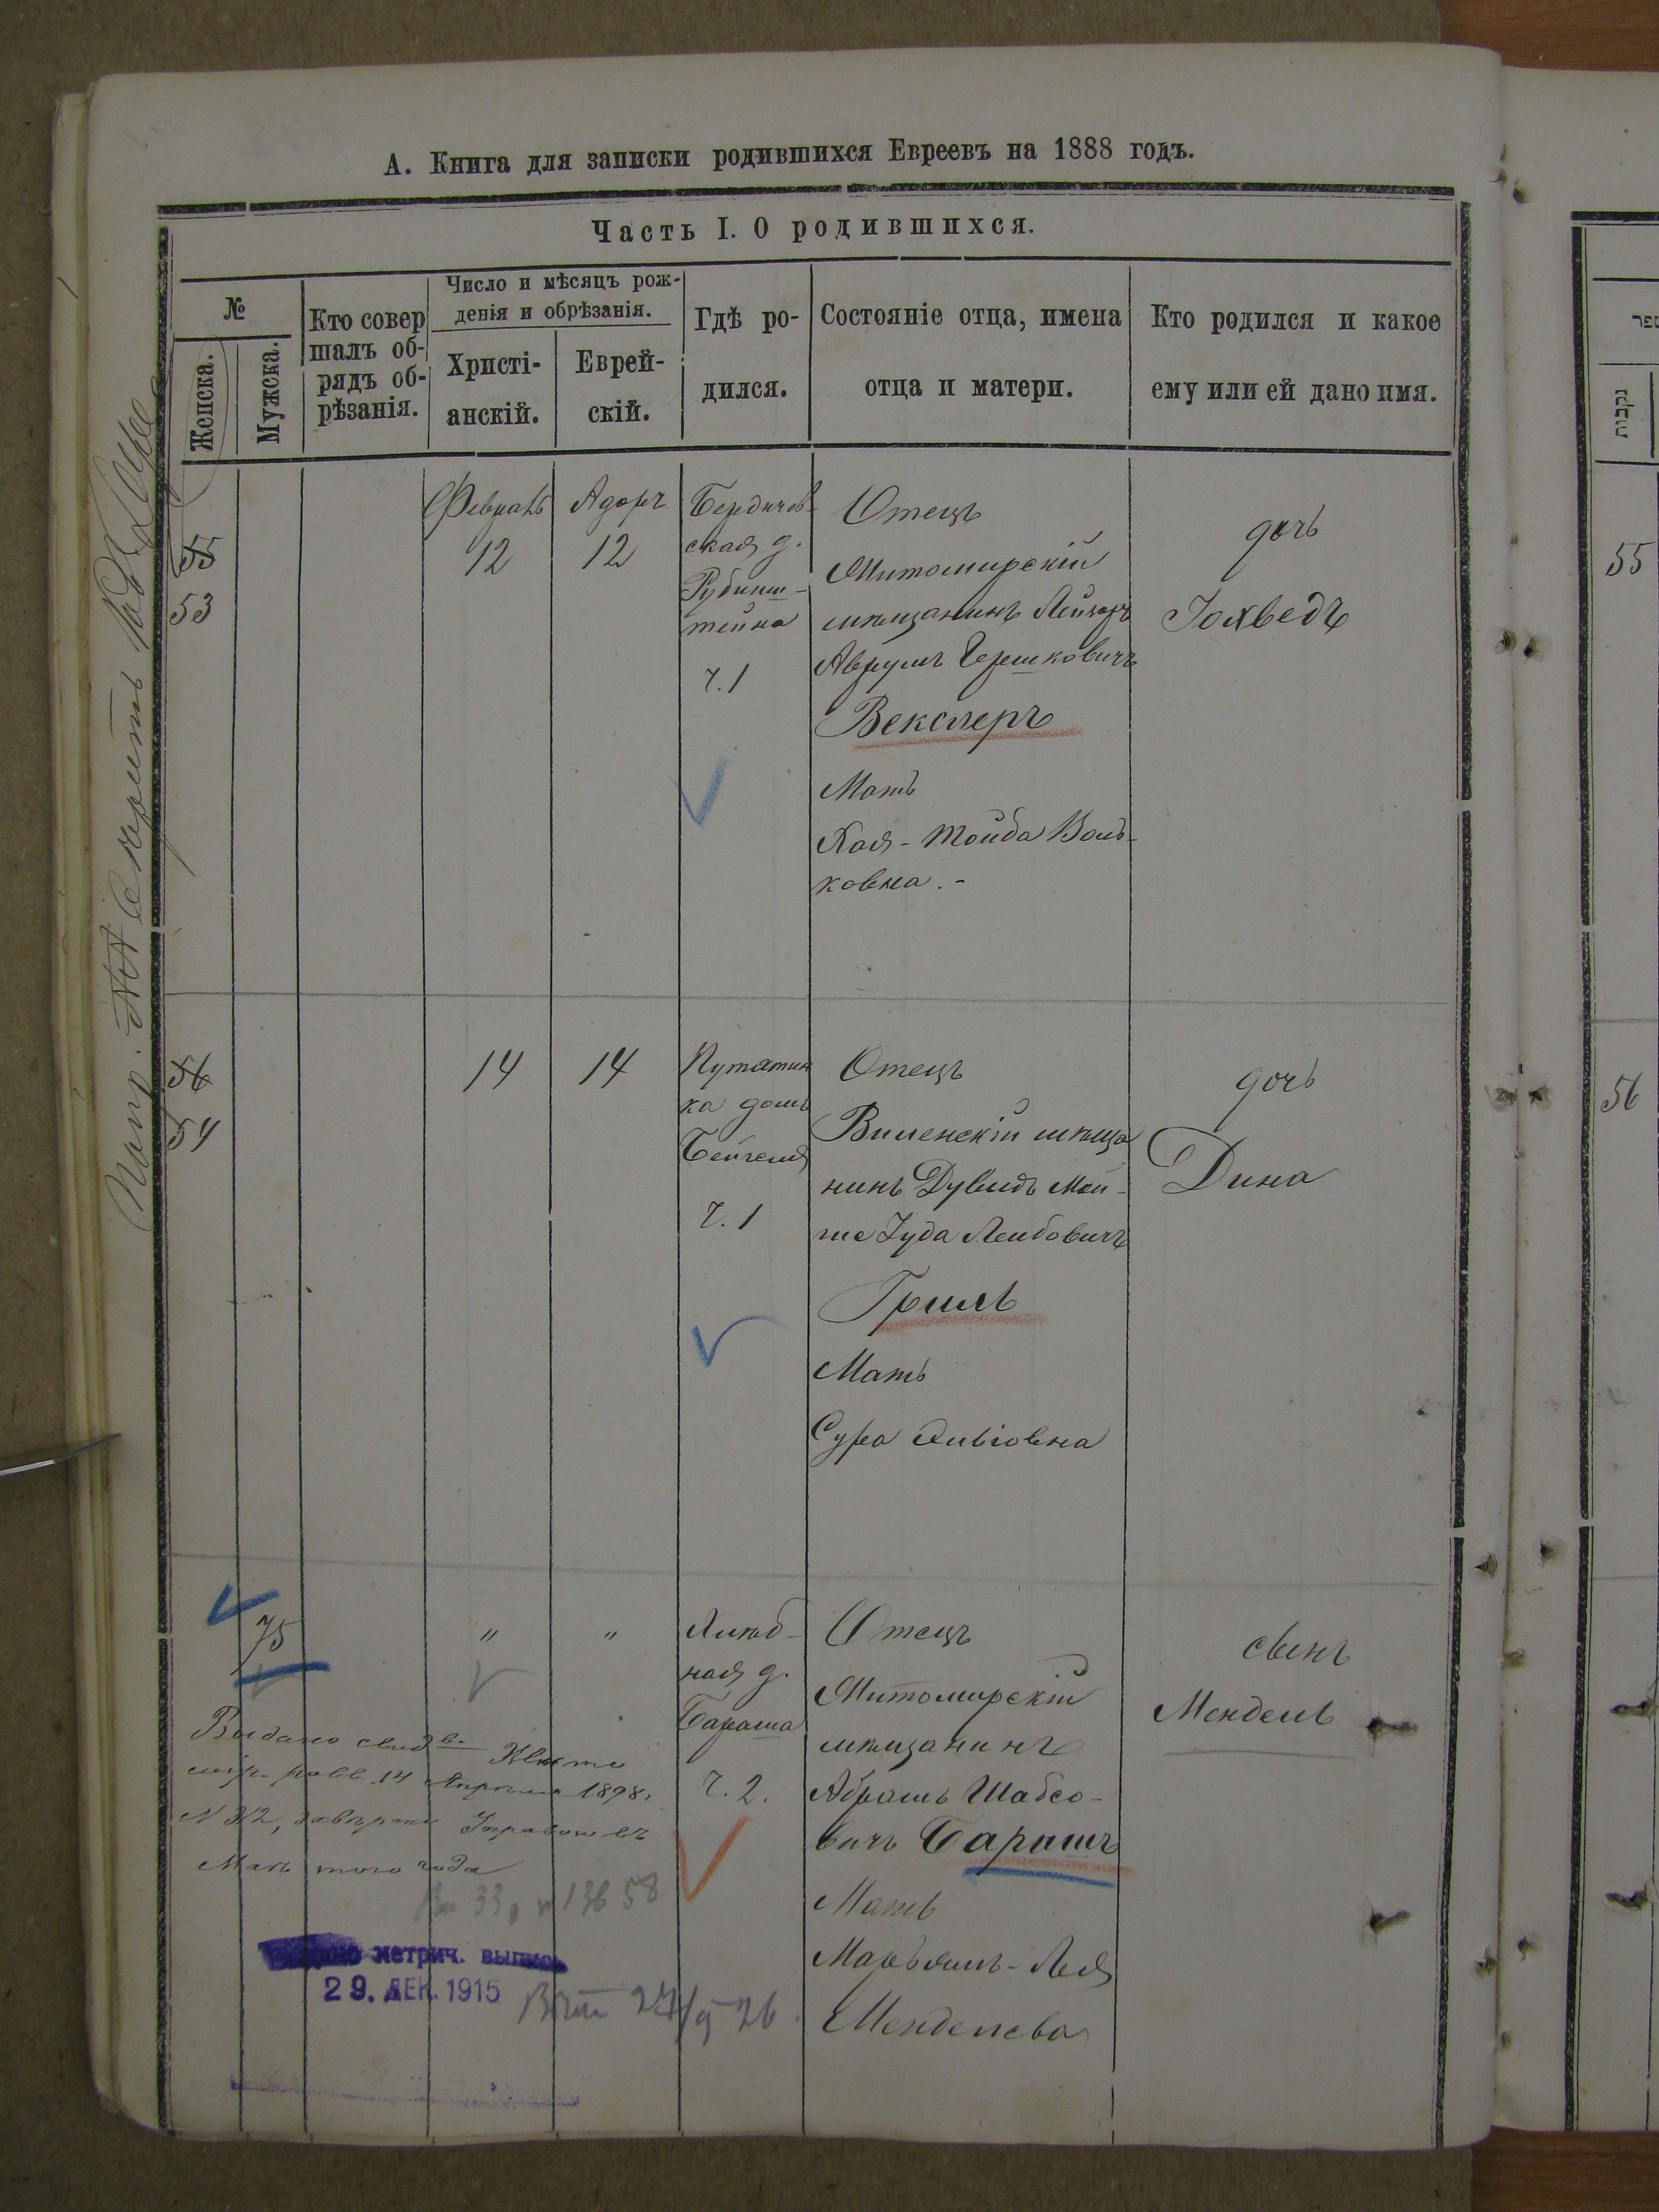 А. Книга для записки родившихся Евреевъ на 1888 годъ.
Часть I. О родившихся.
№
Женска.
Мужска.
Кто совер
шалъ об-
рядъ об-
рѣзанія.
Число и мѣсяцъ рож-
денія и обрѣзанія.
Христі-
анскій.
Еврей-
скій.
Гдѣ ро-
дился.
Состояніе отца, имена
отца и матери.
Кто родился и какое
ему или ей дано имя.
55
53
Февраль
12
Адаръ
12
Бердичев-
ская д.
Рубинш-
тейна
ч. 1
Отецъ
Житомирскій
мѣщанинъ Лейзоръ
Аврумъ Гершковичъ
Векслеръ
Мать
Хая-Тойба Воль-
ковна.-
дочь
Іохведъ
54
14
14
Путятин
ка домъ
Бейгеля
ч. 1
Отецъ
Виленскій мѣща
нинъ Дувидъ Мой-
ше Іуда Лейбовичъ
Гриль
Мать
Сура
дочь
Дина
75
"
"
ная д.
Бараша
ч. 2.
Отецъ
Житомирскій
мѣщанинъ
Абрамъ Шабсо-
вичъ Барашъ
Мать
Марьямъ-Лея
Менделева
сынъ
Мендель
Выдано свид
14 Апрѣля 1898
Маѣ того года
метрич. выпись
29. ДЕК. 1915
נקבות
55
56